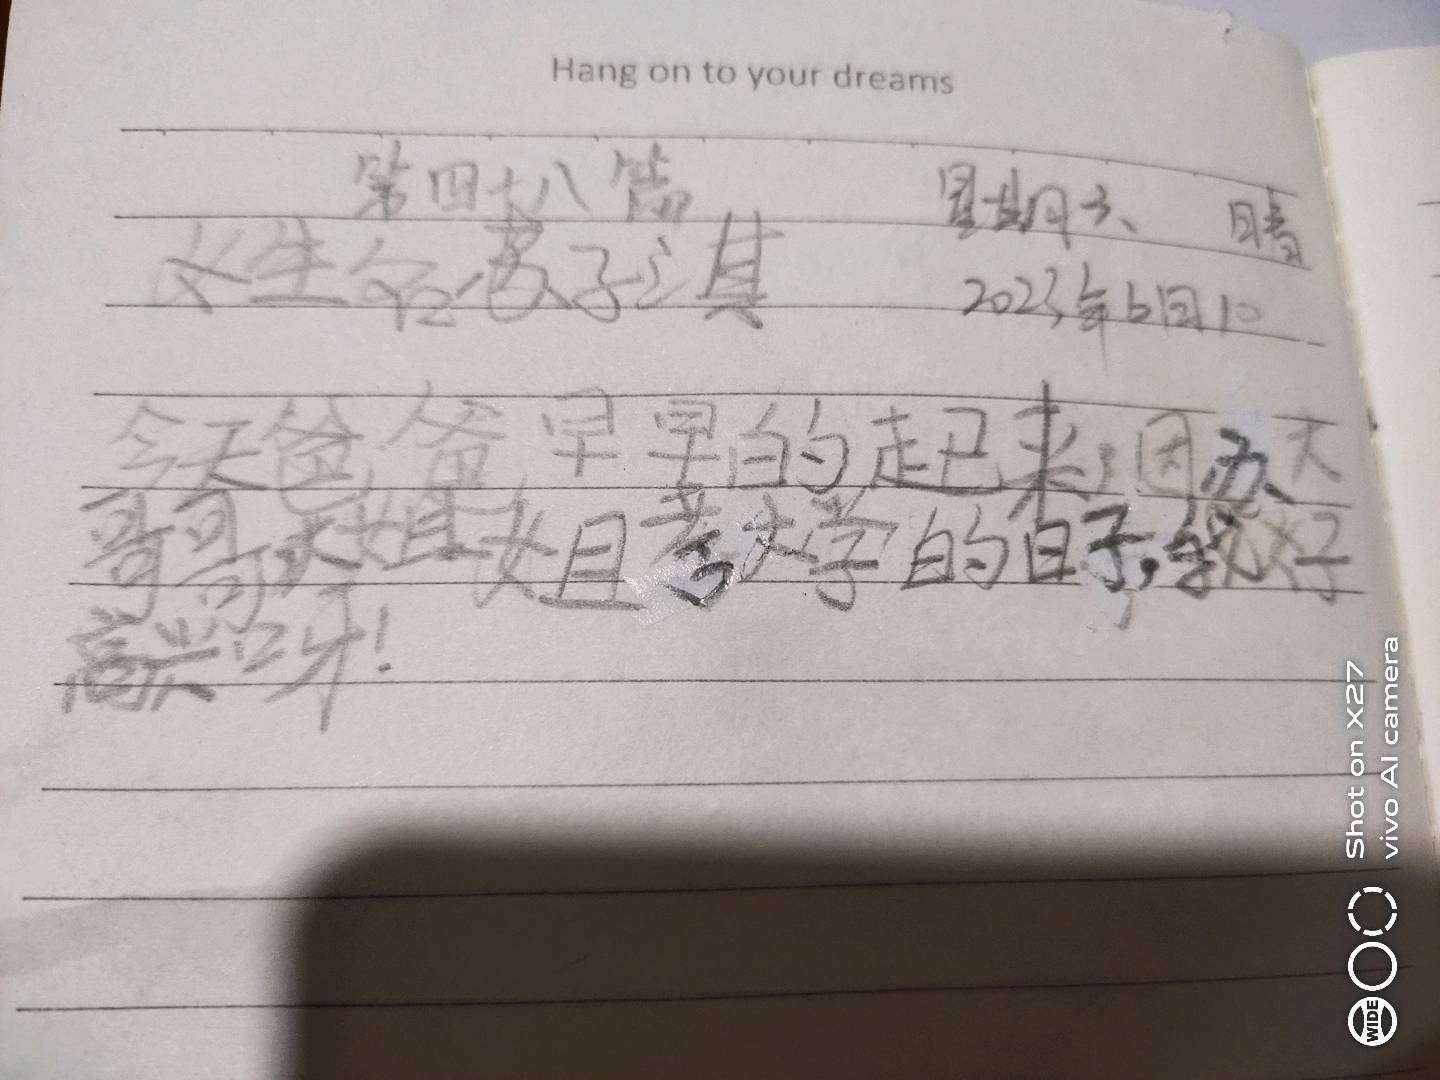 Hang on to your dreams
第四十八篇 星期六 晴
女生命孝子之具 2023年6月10
今天爸爸早早的起来,因为大
哥哥大姐姐考大学的日子,我好
高兴呀!
Shot on X27
vivo AI camera
WIDE